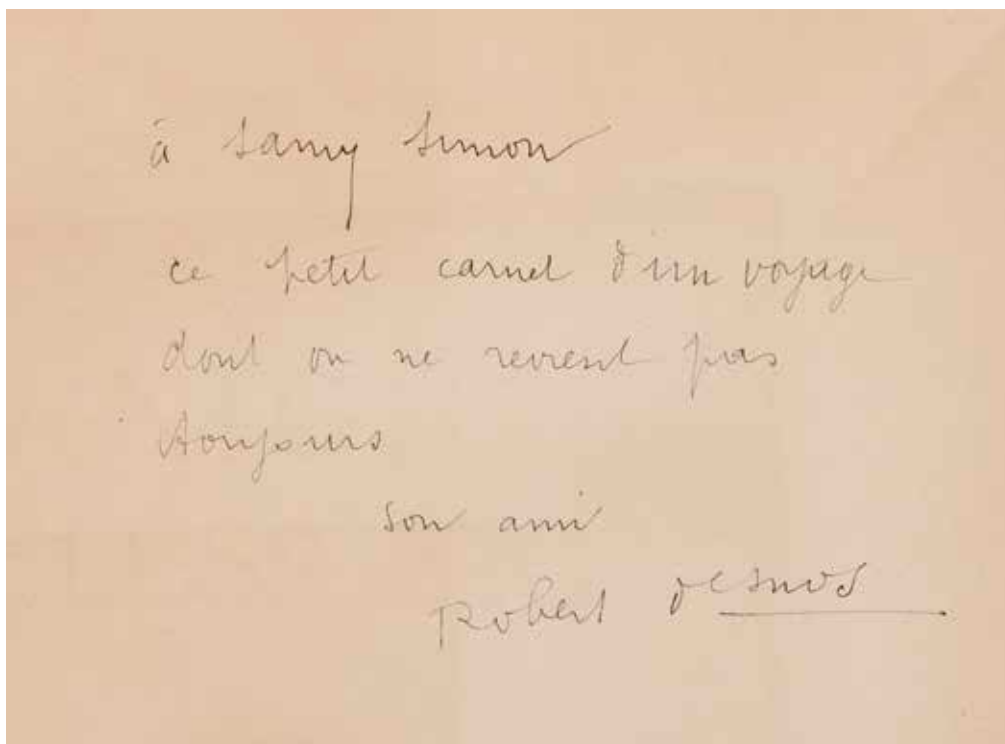 à Samy Simon
ce petit carnet d'un voyage
dont on ne revient pas
toujours
son ami
Robert Desnos